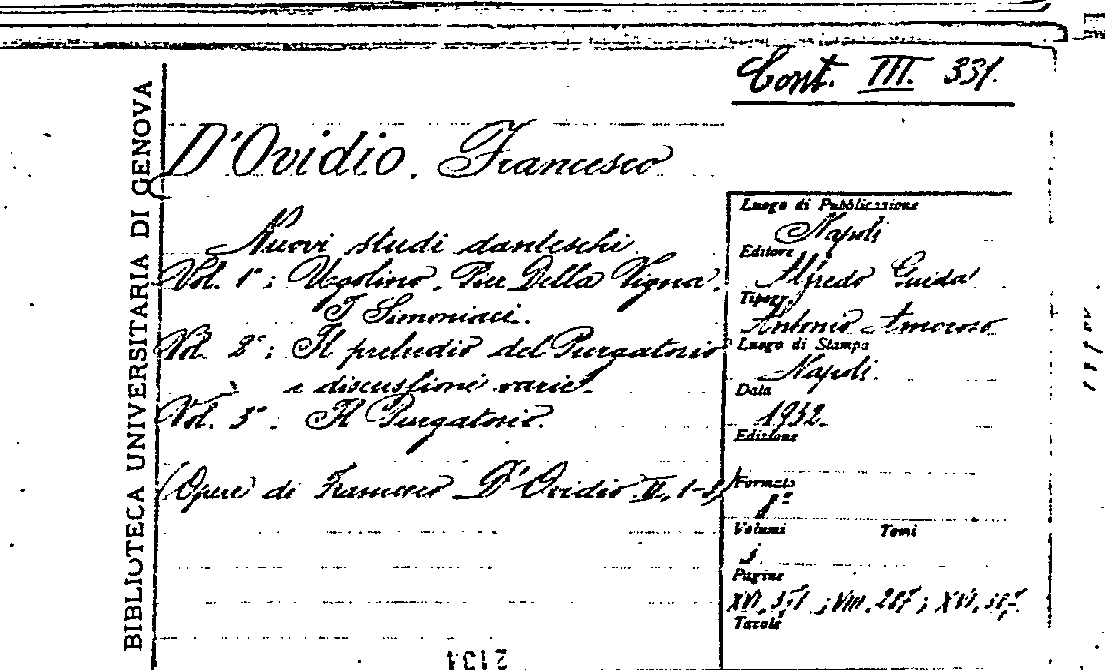 Cont. III. 331.
BIBLIOTECA UNIVERSITARIA DI GENOVA
D'Ovidio. Francesco
Nuovi studi danteschi
Vol. 1°: Ugolino. Pier Della Vigna.
I Simoniaci.
Vol. 2°: Il preludio del Purgatorio
e discussioni varie.
Vol. 3°. Il Purgatorio.
(Opere di Francesco D'Ovidio II, 1-3)
Luogo di Pubblicazione
Napoli
Editore
Alfredo Guida
Tipogr.
Antonio Amoroso
Luogo di Stampa
Napoli.
Data
1932.
Edizione
Formato
8°
Volumi Tomi
3
Pagine
XVI, ; VIII, ; XVI,
Tavole
2134